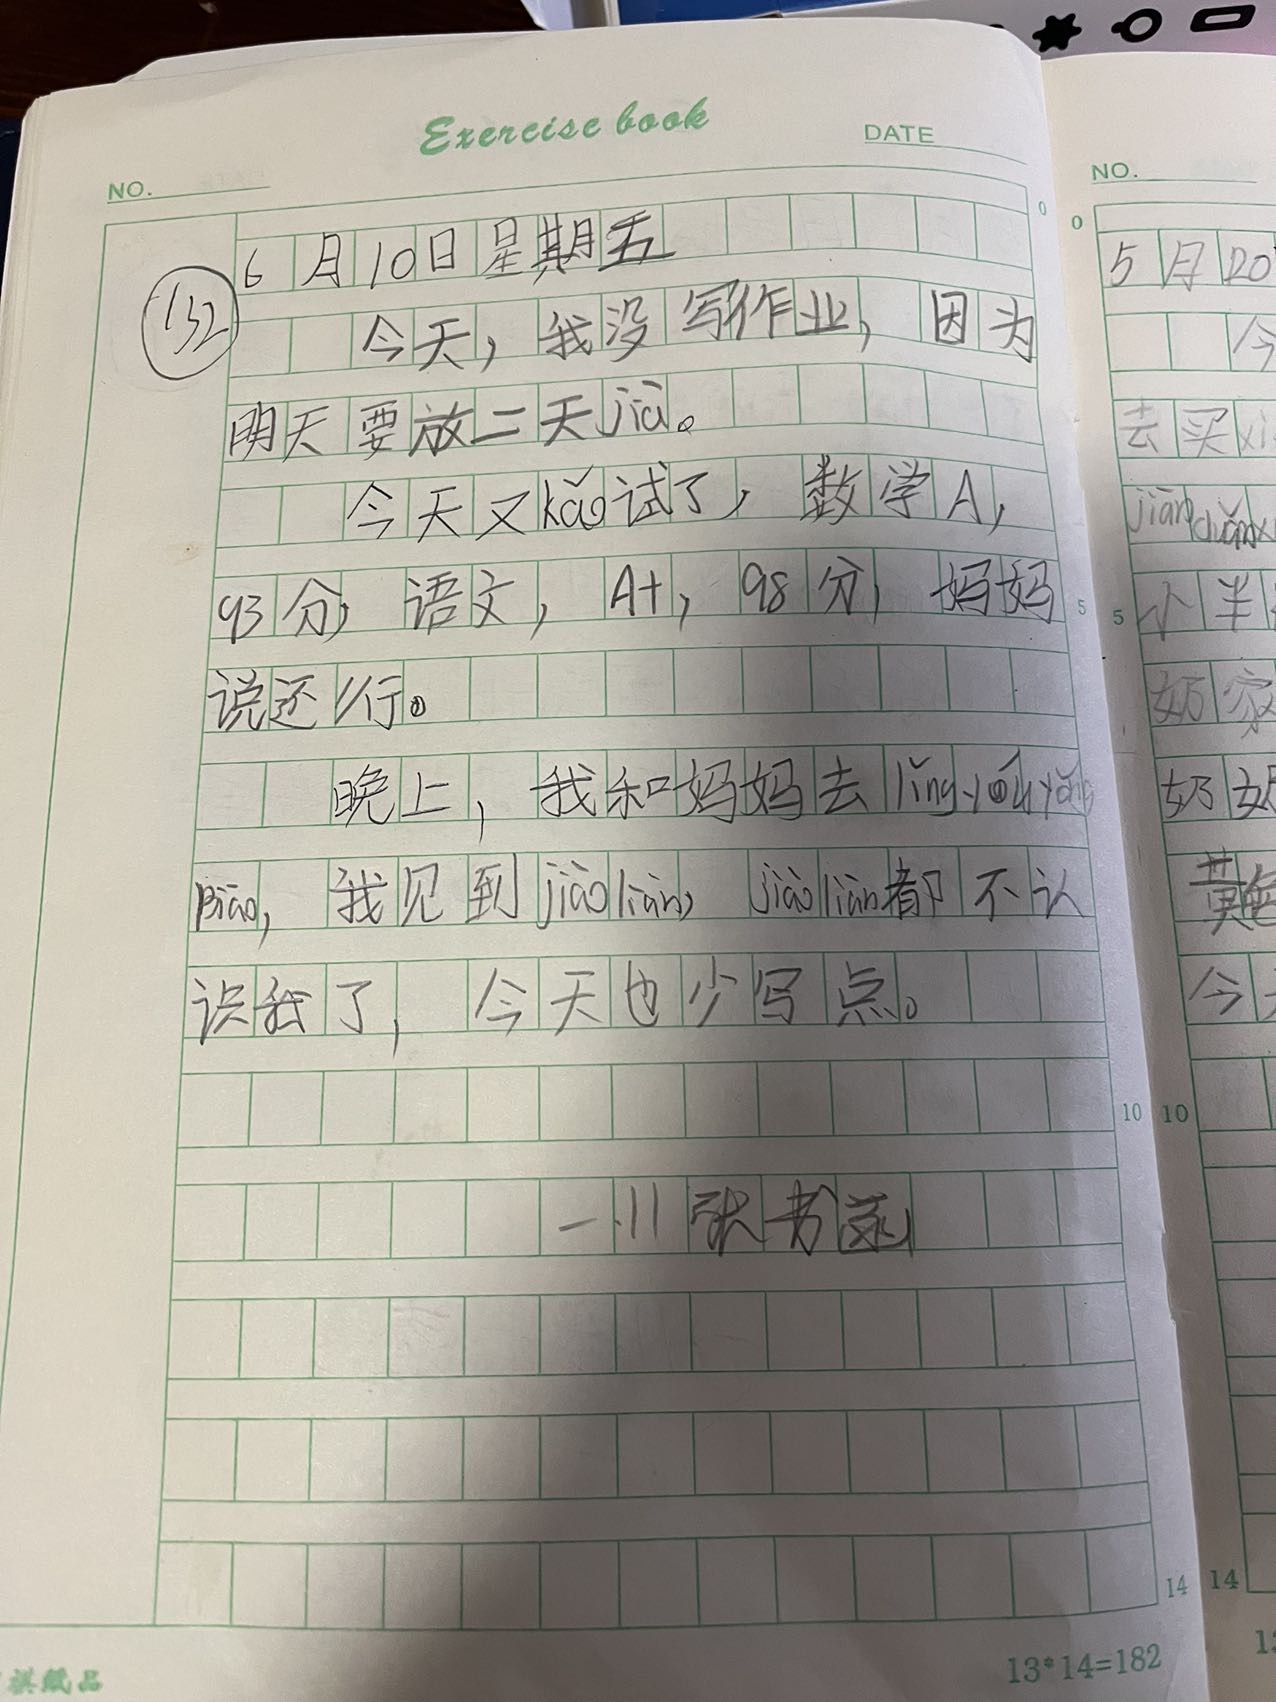 Exercise book
DATE
NO.
132
6月10日星期五
今天，我没写作业，因为
明天要放二天jià。
今天又kǎo试了，数学A，
93分，语文，A+，98分，妈妈
说还行。
晚上，我和妈妈去lǐng yóu yǒng
biāo，我见到jiào liàn，jiào liàn都不认
识我了，今天也少写点。
一.11 张书
13*14=182
0
5
10
14
NO.
0
5月20
今
去买
jiān
5
小羊
奶家
奶奶
黄
今天
10
14